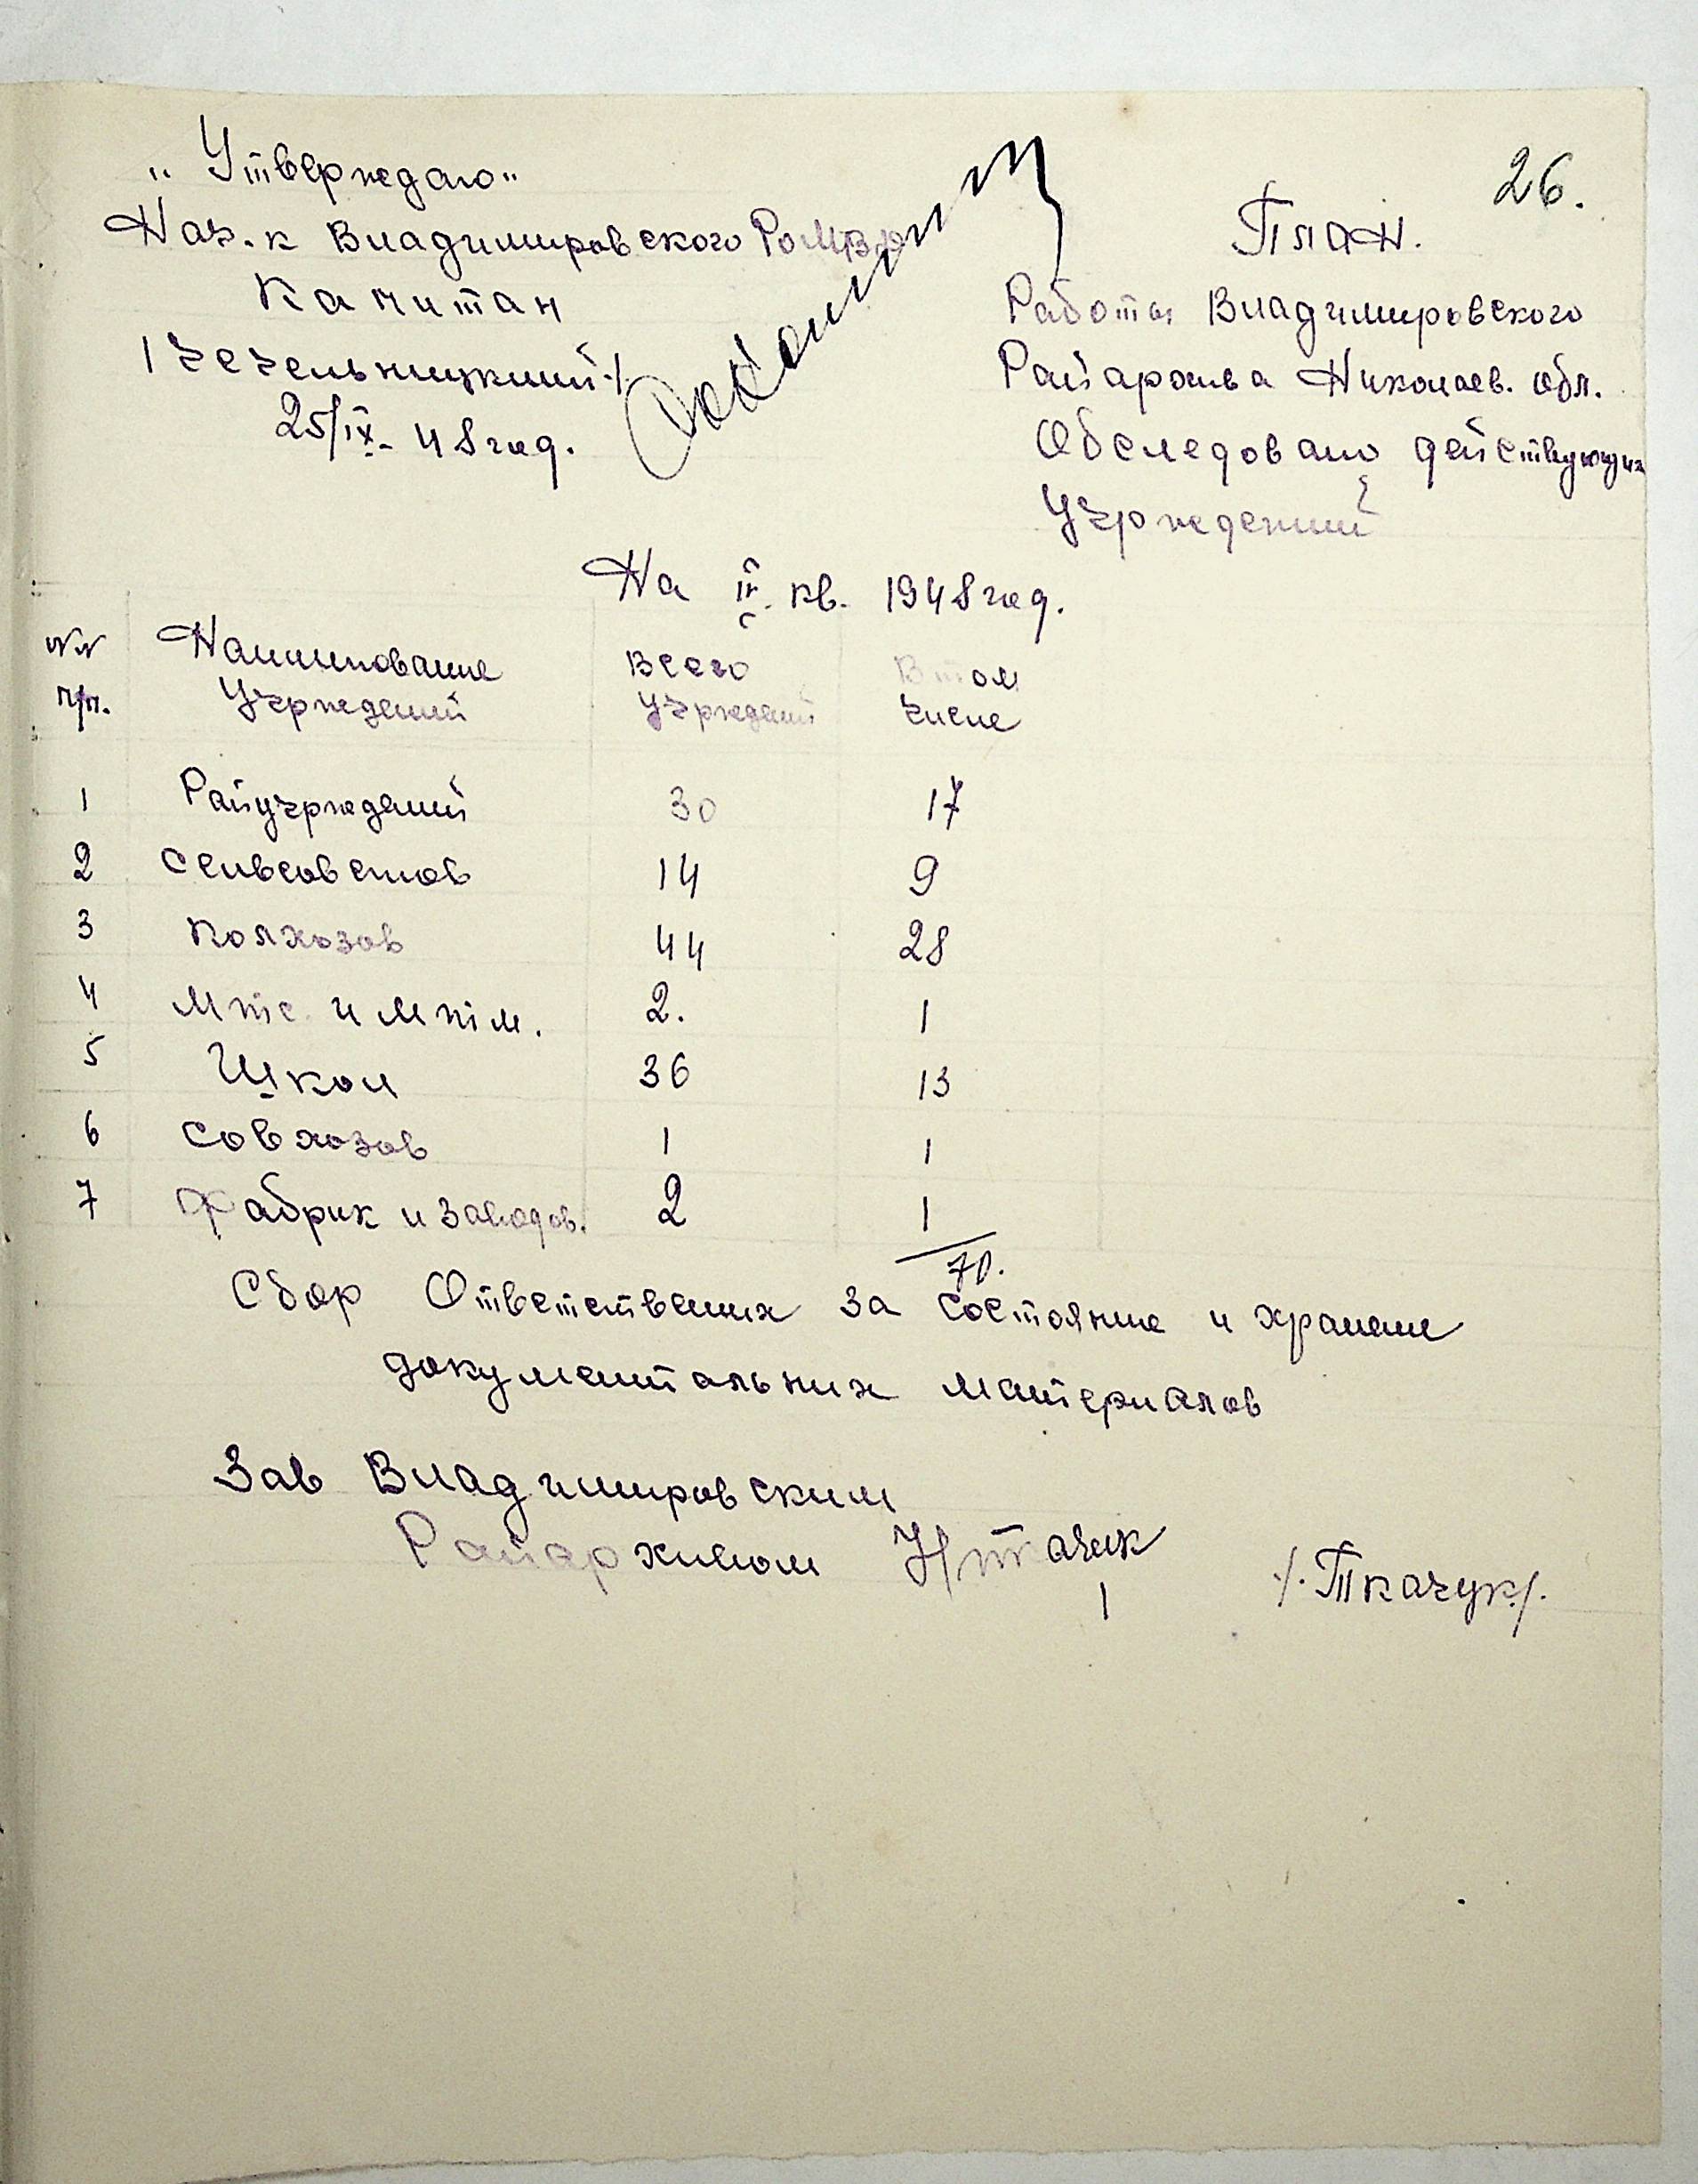 26.
„Утверждаю"
Нач-к Владимировского РоМВД
Капитан
/Чечельницкий/
25/IX-48 год.
План.
Работы Владимировского
Райархива Николаев. обл.
Обследовано действующих
Учреждений
На IV кв. 1948 год.
№№ Наименование Всего В том
п/п. Учреждений Учреждений числе
1 Райучреждений 30 17
2 Сельсоветов 14 9
3 Колхозов 44 28
4 Мтс и Мтм. 2. 1
5 Школ 36 13
6 Совхозов 1 1
7 Фабрик и заводов. 2 1
70.
Сбор Ответственних за состояние и хранение
документальних материалов
Зав Владимировским
Райархивом /.Ткачук/.